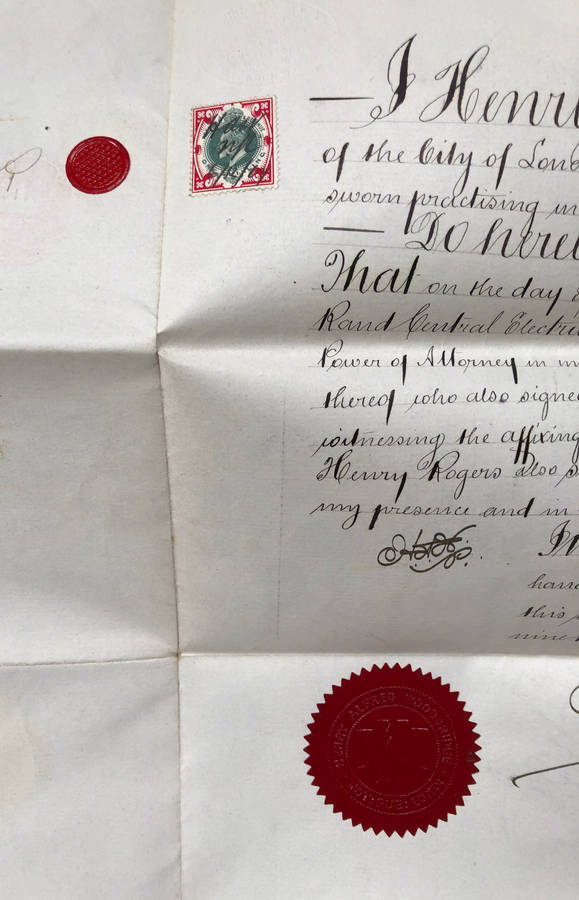 I Henr
of the City of Lond
sworn practising in
Do here
That on the day
Rand Central Electri
Power of Attorney in m
thereof who also signe
witnessing the affixing
Henry Rogers also s
my presence and in
In
hand
this
nine
HENRY ALFRED WOODBRIDGE
NOT: PUB: LONDON